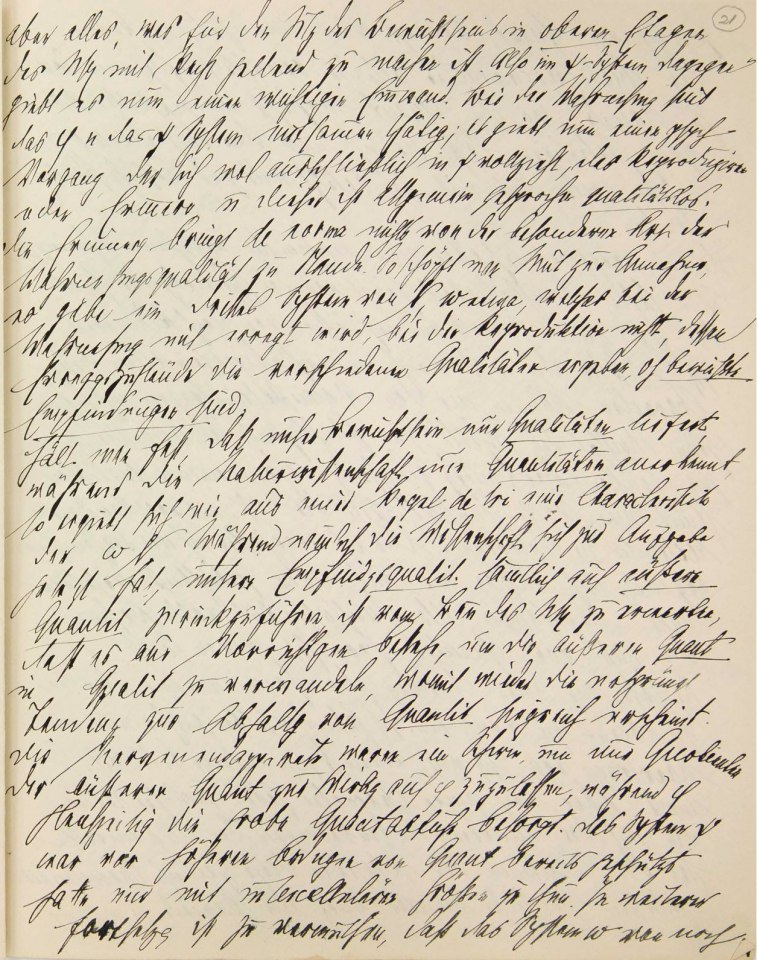 21
aber alles, was für den Sitz des Bewußtseins in oberen Etagen
des Nsy mit Recht geltend zu machen ist. Also im ψ-System. Dagegen
giebt es nun einen wichtigen Einwand. Bei der Wahrnehmg sind
das φ u das ψ System mitsammen thätig; es giebt nun einen psych-
Vorgang, der sich wol ausschließlich in ψ vollzieht, das Reproduziren
oder Erinnern u dieser ist allgemein gesprochen qualitätslos.
die Erinnerg bringt de norma nichts von der besonderen Art der
Wahrnehmgsqualität zu Stande. So schöpft man Mut zur Annahme,
es gäbe ein drittes System von N ω etwa, welches bei der
Wahrnehmg mit erregt wird, bei der Reproduktion nicht, dessen
Erreggszustände die verschiedenen Qualitäten ergeben, dh bewußte
Empfindungen sind.
Hält man fest, daß unser Bewußtsein nur Qualitäten liefert,
während die Naturwissenschaft nur Quantitäten anerkennt,
so ergiebt sich wie aus einer Regel de tri eine Charakteristik
der ω N. Während nemlich die Wissenschaft sich zur Aufgabe
gesetzt hat, unsere Empfindgsqualit. sämtlich auf äußere
Quantit zurückzuführen ist vom Bau des Nsy zu erwarten,
daß es aus Vorrichtgen bestehe, um die äußere Quant
in Qualit zu verwandeln, womit wieder die ursprüngl
Tendenz zur Abhaltg von Quantit. siegreich erscheint.
die Nervenendapparate waren ein Schirm, um nur Quotienten
der äußeren Quant zur Wirkg auf φ zuzulassen, während φ
gleichzeitig die grobe Quantabfuhr besorgt. das System ψ
war vor höheren Ordngen von Quant bereits geschützt
hatte nur mit intercellulären Größen zu thun. In weiterer
Fortsetzg ist zu vermuthen, daß das System ω von noch